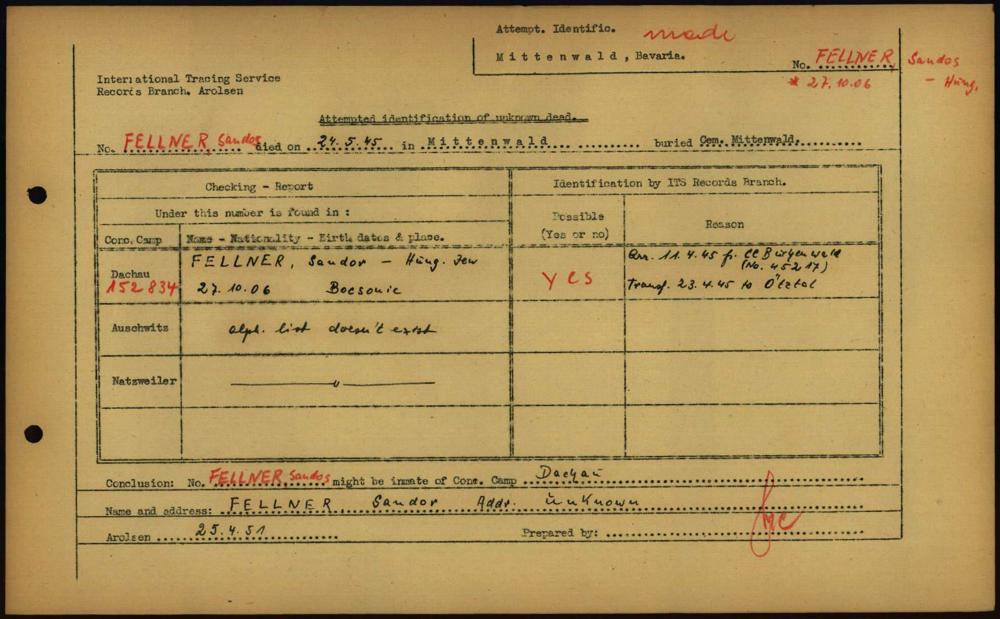 Attempt. Identific. made
Mittenwald, Bavaria.
No. FELLNER, Sandos
* 27.10.06 - Hung.
International Tracing Service
Records Branch, Arolsen
Attempted identification of unknown dead.
No. FELLNER, Sandos died on 24.5.45 in Mittenwald buried Cem. Mittenwald.
Checking - Report
Identification by ITS Records Branch.
Under this number is found in :
Possible
(Yes or no)
Reason
Conc. Camp
Name - Nationality - Birth dates & place.
Dachau
152834
FELLNER, Sandor - Hung. Jew
27.10.06 Bocsonic
yes
Arr. 11.4.45 fr. CC
(No. 45217)
Transf. 23.4.45 to Ötztal
Auschwitz
alph. list doesn't exist
Natzweiler
— " —
Conclusion: No. FELLNER Sandos might be inmate of Conc. Camp Dachau
Name and address: FELLNER Sandor Addr. unknown
Arolsen 25.4.51 Prepared by: